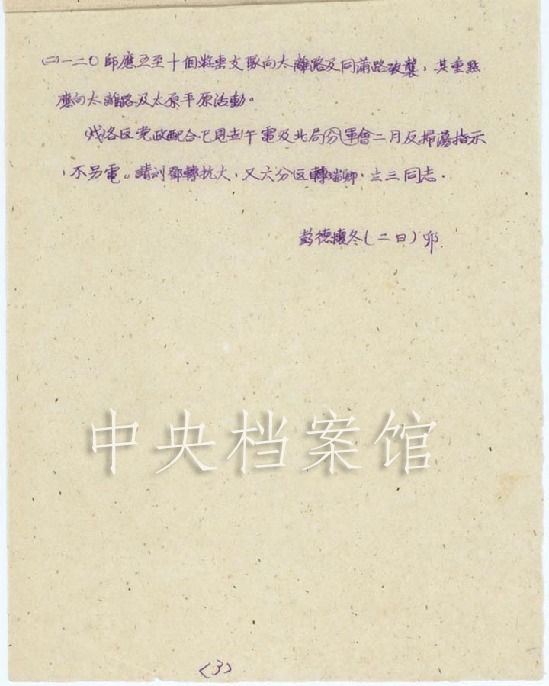 一二〇師應五至十個營出支隊向太離路及同蒲路攻襲，其重點
應向太離路及太原平原活動。
戰各區党政配合已見午電及北局二月反掃蕩指示
，不另電。請劉鄧轉抗大，又六分區轉，立三同志。
德懷冬(二日)卯
中央档案馆
(3)